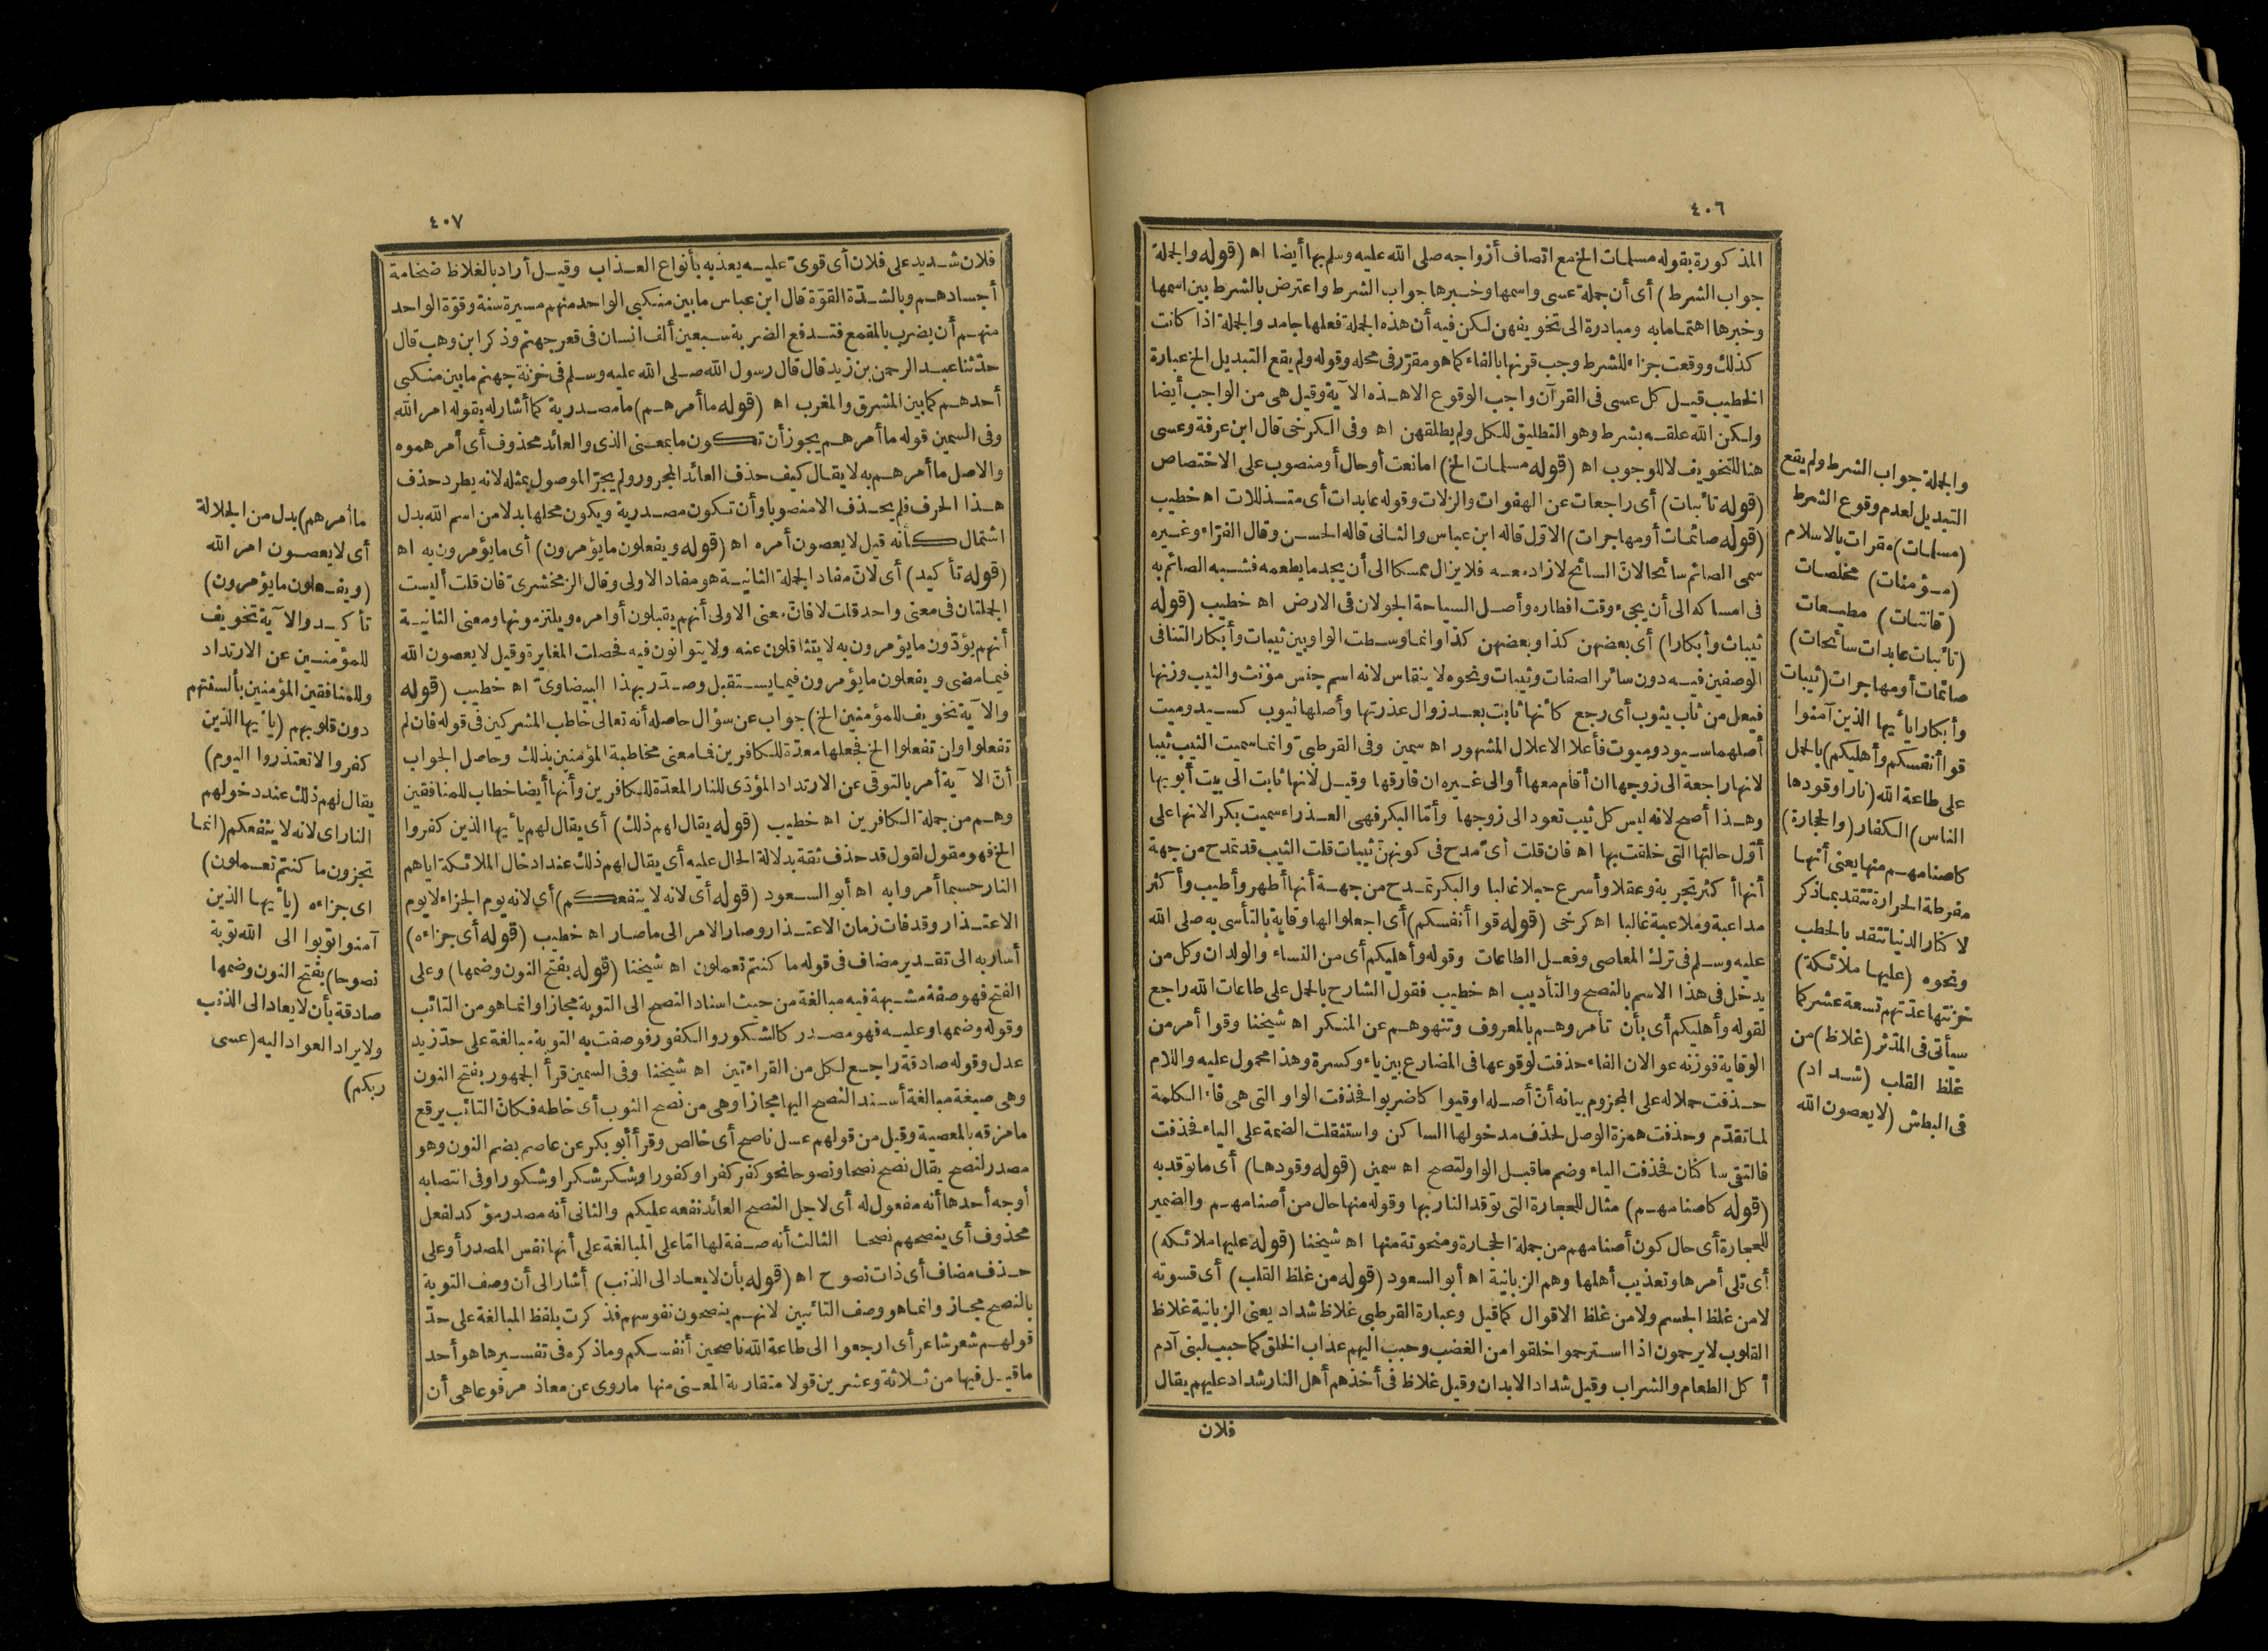 ٤٠٦
المذكورة بقوله مسلمات الخ مع اتصاف أزواجه صلى الله عليه وسلم بها أيضا اه (قوله والجملة
جواب الشرط) أى أن جملة عسى واسمها وخبرها جواب الشرط واعترض بالشرط بين اسمها
وخبرها اهتماما به ومبادرة الى تخويفهن لكن فيه أن هذه الجملة فعلها جامد والجملة اذا كانت
كذلك ووقعت جزاء للشرط وجب قرنها بالفاء كما هو مقرّر فى محله وقوله ولم يقع التبديل الخ عبارة
الخطيب قيل كل عسى فى القرآن واجب الوقوع الا هذه الآية وقيل هى من الواجب أيضا
ولكن الله علقه بشرط وهو التطليق للكل ولم يطلقهن اه وفى الكرخى قال ابن عرفة وعسى
هنا للتخويف لا للوجوب اه (قوله مسلمات الخ) اما نعت أو حال أو منصوب على الاختصاص
(قوله تائبات) أى راجعات عن الهفوات والزلات وقوله عابدات أى متذللات اه خطيب
(قوله صائمات أو مهاجرات) الاوّل قاله ابن عباس والثانى قاله الحسن وقال الفرّاء وغيره
سمى الصائم سائحا لانّ السائح لا زاد معه فلا يزال ممسكا الى أن يجد ما يطعمه فشبه الصائم به
فى امساكه الى أن يجىء وقت افطاره وأصل السياحة الجولان فى الارض اه خطيب (قوله
ثيبات وأبكارا) أى بعضهن كذا وبعضهن كذا وانما وسطت الواو بين ثيبات وأبكار التنافى
الوصفين فيه دون سائر الصفات وثيبات ونحوه لا ينقاس لانه اسم جنس مؤنث والثيب وزنها
فيعل من ثاب يثوب أى رجع كأنها ثابت بعد زوال عذرتها وأصلها ثيوب كسيد وميت
أصلهما سيود وميوت فأعلا الاعلال المشهور اه سمين وفى القرطبىّ وانما سميت الثيب ثيبا
لانها راجعة الى زوجها ان أقام معها أو الى غيره ان فارقها وقيل لانها ثابت الى بيت أبويها
وهذا أصح لانه ليس كل ثيب تعود الى زوجها وأمّا البكر فهى العذراء سميت بكرا لانها على
أوّل حالتها التى خلقت بها اه فان قلت أىّ مدح فى كونهنّ ثيبات قلت الثيب قد تمدح من جهة
أنها أكثر تجربة وعقلا وأسرع حبلا غالبا والبكر تمدح من جهة أنها أطهر وأطيب وأكثر
مداعبة وملاعبة غالبا اه كرخى (قوله قوا أنفسكم) أى اجعلوا لها وقاية بالتأسى به صلى الله
عليه وسلم فى ترك المعاصى وفعل الطاعات وقوله وأهليكم أى من النساء والولدان وكل من
يدخل فى هذا الاسم بالنصح والتأديب اه خطيب فقول الشارح بالحمل على طاعات الله راجع
لقوله وأهليكم أى بأن تأمروهم بالمعروف وتنهوهم عن المنكر اه شيخنا وقوا أمر من
الوقاية فوزنه عوا لان الفاء حذفت لوقوعها فى المضارع بين ياء وكسرة وهذا محمول عليه واللام
حذفت حملا له على المجزوم بيانه أنّ أصله اوقيوا كاضربوا فحذفت الواو التى هى فاء الكلمة
لما تقدّم وحذفت همزة الوصل لحذف مدخولها الساكن واستثقلت الضمة على الياء فحذفت
فالتقى ساكنان فحذفت الياء وضم ما قبل الواو لتصح اه سمين (قوله وقودها) أى ما توقد به
(قوله كاصنامهم) مثال للحجارة التى توقد النار بها وقوله منها حال من أصنامهم والضمير
للحجارة أى حال كون أصنامهم من جملة الحجارة ومنحوتة منها اه شيخنا (قوله عليها ملائكة)
أى تلى أمرها وتعذيب أهلها وهم الزبانية اه أبو السعود (قوله من غلظ القلب) أى قسوته
لا من غلظ الجسم ولا من غلظ الاقوال كما قيل وعبارة القرطبى غلاظ شداد يعنى الزبانية غلاظ
القلوب لا يرحمون اذا استرحموا خلقوا من الغضب وحبب اليهم عذاب الخلق كما حبب لبنى آدم
أكل الطعام والشراب وقيل شداد الابدان وقيل غلاظ فى أخذهم أهل النار شداد عليهم يقال
فلان
والجملة جواب الشرط ولم يقع
التبديل لعدم وقوع الشرط
(مسلمات) مقرات بالاسلام
(مؤمنات) مخلصات
(قانتات) مطيعات
(تائبات عابدات سائحات)
صائمات أو مهاجرات (ثيبات
وأبكارا يا أيها الذين آمنوا
قوا أنفسكم وأهليكم) بالحمل
على طاعة الله (نارا وقودها
الناس) الكفار (والحجارة)
كاصنامهم منها يعنى أنها
مفرطة الحرارة تتقد بما ذكر
لا كنار الدنيا تتقد بالحطب
ونحوه (عليها ملائكة)
خزنتها عدّتهم تسعة عشر كما
سيأتى فى المدّثر (غلاظ) من
غلظ القلب (شداد)
فى البطش (لا يعصون الله
٤٠٧
فلان شديد على فلان أى قوىّ عليه يعذبه بأنواع العذاب وقيل أراد بالغلاظ ضخامة
أجسادهم وبالشدّة القوّة قال ابن عباس ما بين منكبى الواحد منهم مسيرة سنة وقوّة الواحد
منهم أن يضرب بالمقمع فتدفع الضربة سبعين ألف انسان فى قعر جهنم وذكر ابن وهب قال
حدّثنا عبد الرحمن بن زيد قال قال رسول الله صلى الله عليه وسلم فى خزنة جهنم ما بين منكبى
أحدهم كما بين المشرق والمغرب اه (قوله ما أمرهم) ما مصدرية كما أشار له بقوله امر الله
وفى السمين قوله ما أمرهم يجوز أن تكون ما بمعنى الذى والعائد محذوف أى أمرهموه
والاصل ما أمرهم به لا يقال كيف حذف العائد المجرور ولم يجرّ الموصول بمثله لانه يطرد حذف
هذا الحرف فلم يحذف الا منصوبا وأن تكون مصدرية ويكون محلها بدلا من اسم الله بدل
اشتمال كأنه قيل لا يعصون أمره اه (قوله ويفعلون ما يؤمرون) أى ما يؤمرون به اه
(قوله تأكيد) أى لانّ مفاد الجملة الثانية هو مفاد الاولى وقال الزمخشرىّ فان قلت أليست
الجملتان فى معنى واحد قلت لا فانّ معنى الاولى أنهم يقبلون أوامره ويلتزمونها ومعنى الثانية
أنهم يؤدّون ما يؤمرون به لا يتثاقلون عنه ولا يتوانون فيه فحصلت المغايرة وقيل لا يعصون الله
فيما مضى ويفعلون ما يؤمرون فيما يستقبل وصدّر بهذا البيضاوىّ اه خطيب (قوله
والآية تخويف للمؤمنين الخ) جواب عن سؤال حاصله أنه تعالى خاطب المشركين فى قوله فان لم
تفعلوا ولن تفعلوا الخ فجعلها معدّة للكافرين فما معنى مخاطبة المؤمنين بذلك وحاصل الجواب
أنّ الآية أمر بالتوقى عن الارتداد المؤدّى للنار المعدّة للكافرين وأنها أيضا خطاب للمنافقين
وهم من جملة الكافرين اه خطيب (قوله يقال لهم ذلك) أى يقال لهم يا أيها الذين كفروا
الخ فهو مقول لقول قد حذف ثقة بدلالة الحال عليه أى يقال لهم ذلك عند ادخال الملائكة اياهم
النار حسبما أمروا به اه أبو السعود (قوله أى لانه لا ينفعكم) أى لانه يوم الجزاء لا يوم
الاعتذار وقد فات زمان الاعتذار وصار الامر الى ما صار اه خطيب (قوله أى جزاءه)
أشار به الى تقدير مضاف فى قوله ما كنتم تعملون اه شيخنا (قوله بفتح النون وضمها) وعلى
الفتح فهو صفة مشبهة فيه مبالغة من حيث اسناد النصح الى التوبة مجازا وانما هو من التائب
وقوله وضمها وعليه فهو مصدر كالشكور والكفور فوصفت به التوبة مبالغة على حدّ زيد
عدل وقوله صادقة راجع لكل من القراءتين اه شيخنا وفى السمين قرأ الجمهور بفتح النون
وهى صيغة مبالغة أسند النصح اليها مجازا وهى من نصح الثوب أى خاطه فكانّ التائب يرقع
ما مزقه بالمعصية وقيل من قولهم عسل ناصح أى خالص وقرأ أبو بكر عن عاصم بضم النون وهو
مصدر لنصح يقال نصح نصحا ونصوحا نحو كفر كفرا وكفورا وشكر شكرا وشكورا وفى انتصابه
أوجه أحدها أنه مفعول له أى لاجل النصح العائد نفعه عليكم والثانى أنه مصدر مؤكد لفعل
محذوف أى ينصحهم نصحا الثالث أنه صفة لها امّا على المبالغة على أنها نفس المصدر أو على
حذف مضاف أى ذات نصوح اه (قوله بأن لا يعاد الى الذنب) أشار الى أن وصف التوبة
بالنصح مجاز وانما هو وصف التائبين لانهم ينصحون نفوسهم فذكرت بلفظ المبالغة على حدّ
قولهم شعر شاعر أى ارجعوا الى طاعة الله ناصحين أنفسكم وما ذكره فى تفسيرها هو أحد
ما قيل فيها من ثلاثة وعشرين قولا متقاربة المعنى منها ما روى عن معاذ مرفوعا هى أن
ما أمرهم) بدل من الجلالة
أى لا يعصون امر الله
(ويفعلون ما يؤمرون)
تأكيد والآية تخويف
للمؤمنين عن الارتداد
وللمنافقين المؤمنين بألسنتهم
دون قلوبهم (يا أيها الذين
كفروا لا تعتذروا اليوم)
يقال لهم ذلك عند دخولهم
النار اى لانه لا ينفعكم (انما
تجزون ما كنتم تعملون)
اى جزاءه (يا أيها الذين
آمنوا توبوا الى الله توبة
نصوحا) بفتح النون وضمها
صادقة بأن لا يعاد الى الذنب
ولا يراد العود اليه (عسى
ربكم)